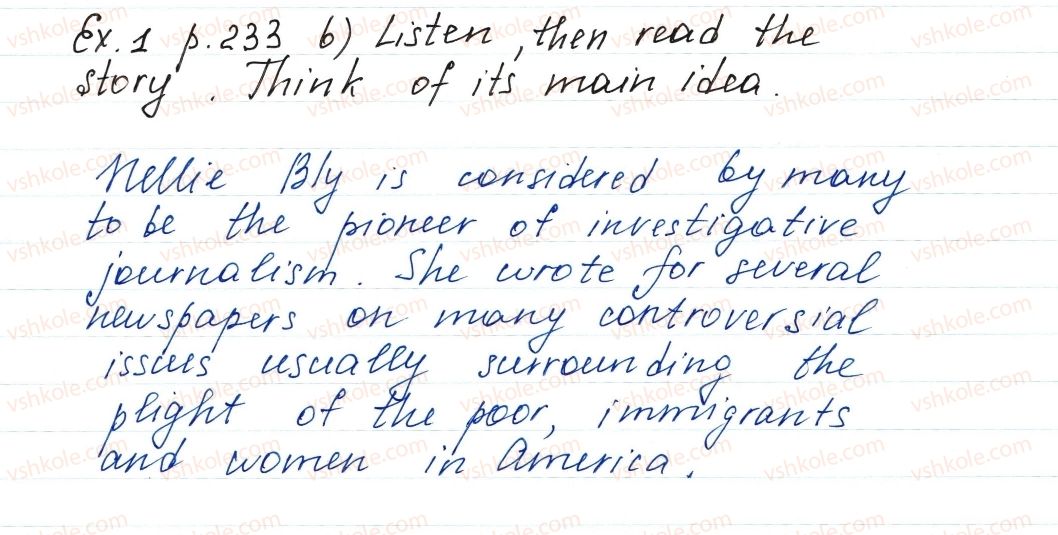 Ex. 1 p. 233 b) Listen, then read the
story. Think of its main idea.
Nellie Bly is considered by many
to be the pioneer of investigative
journalism. She wrote for several
newspapers on many controversial
issues usually surrounding the
plight of the poor, immigrants
and women in America.